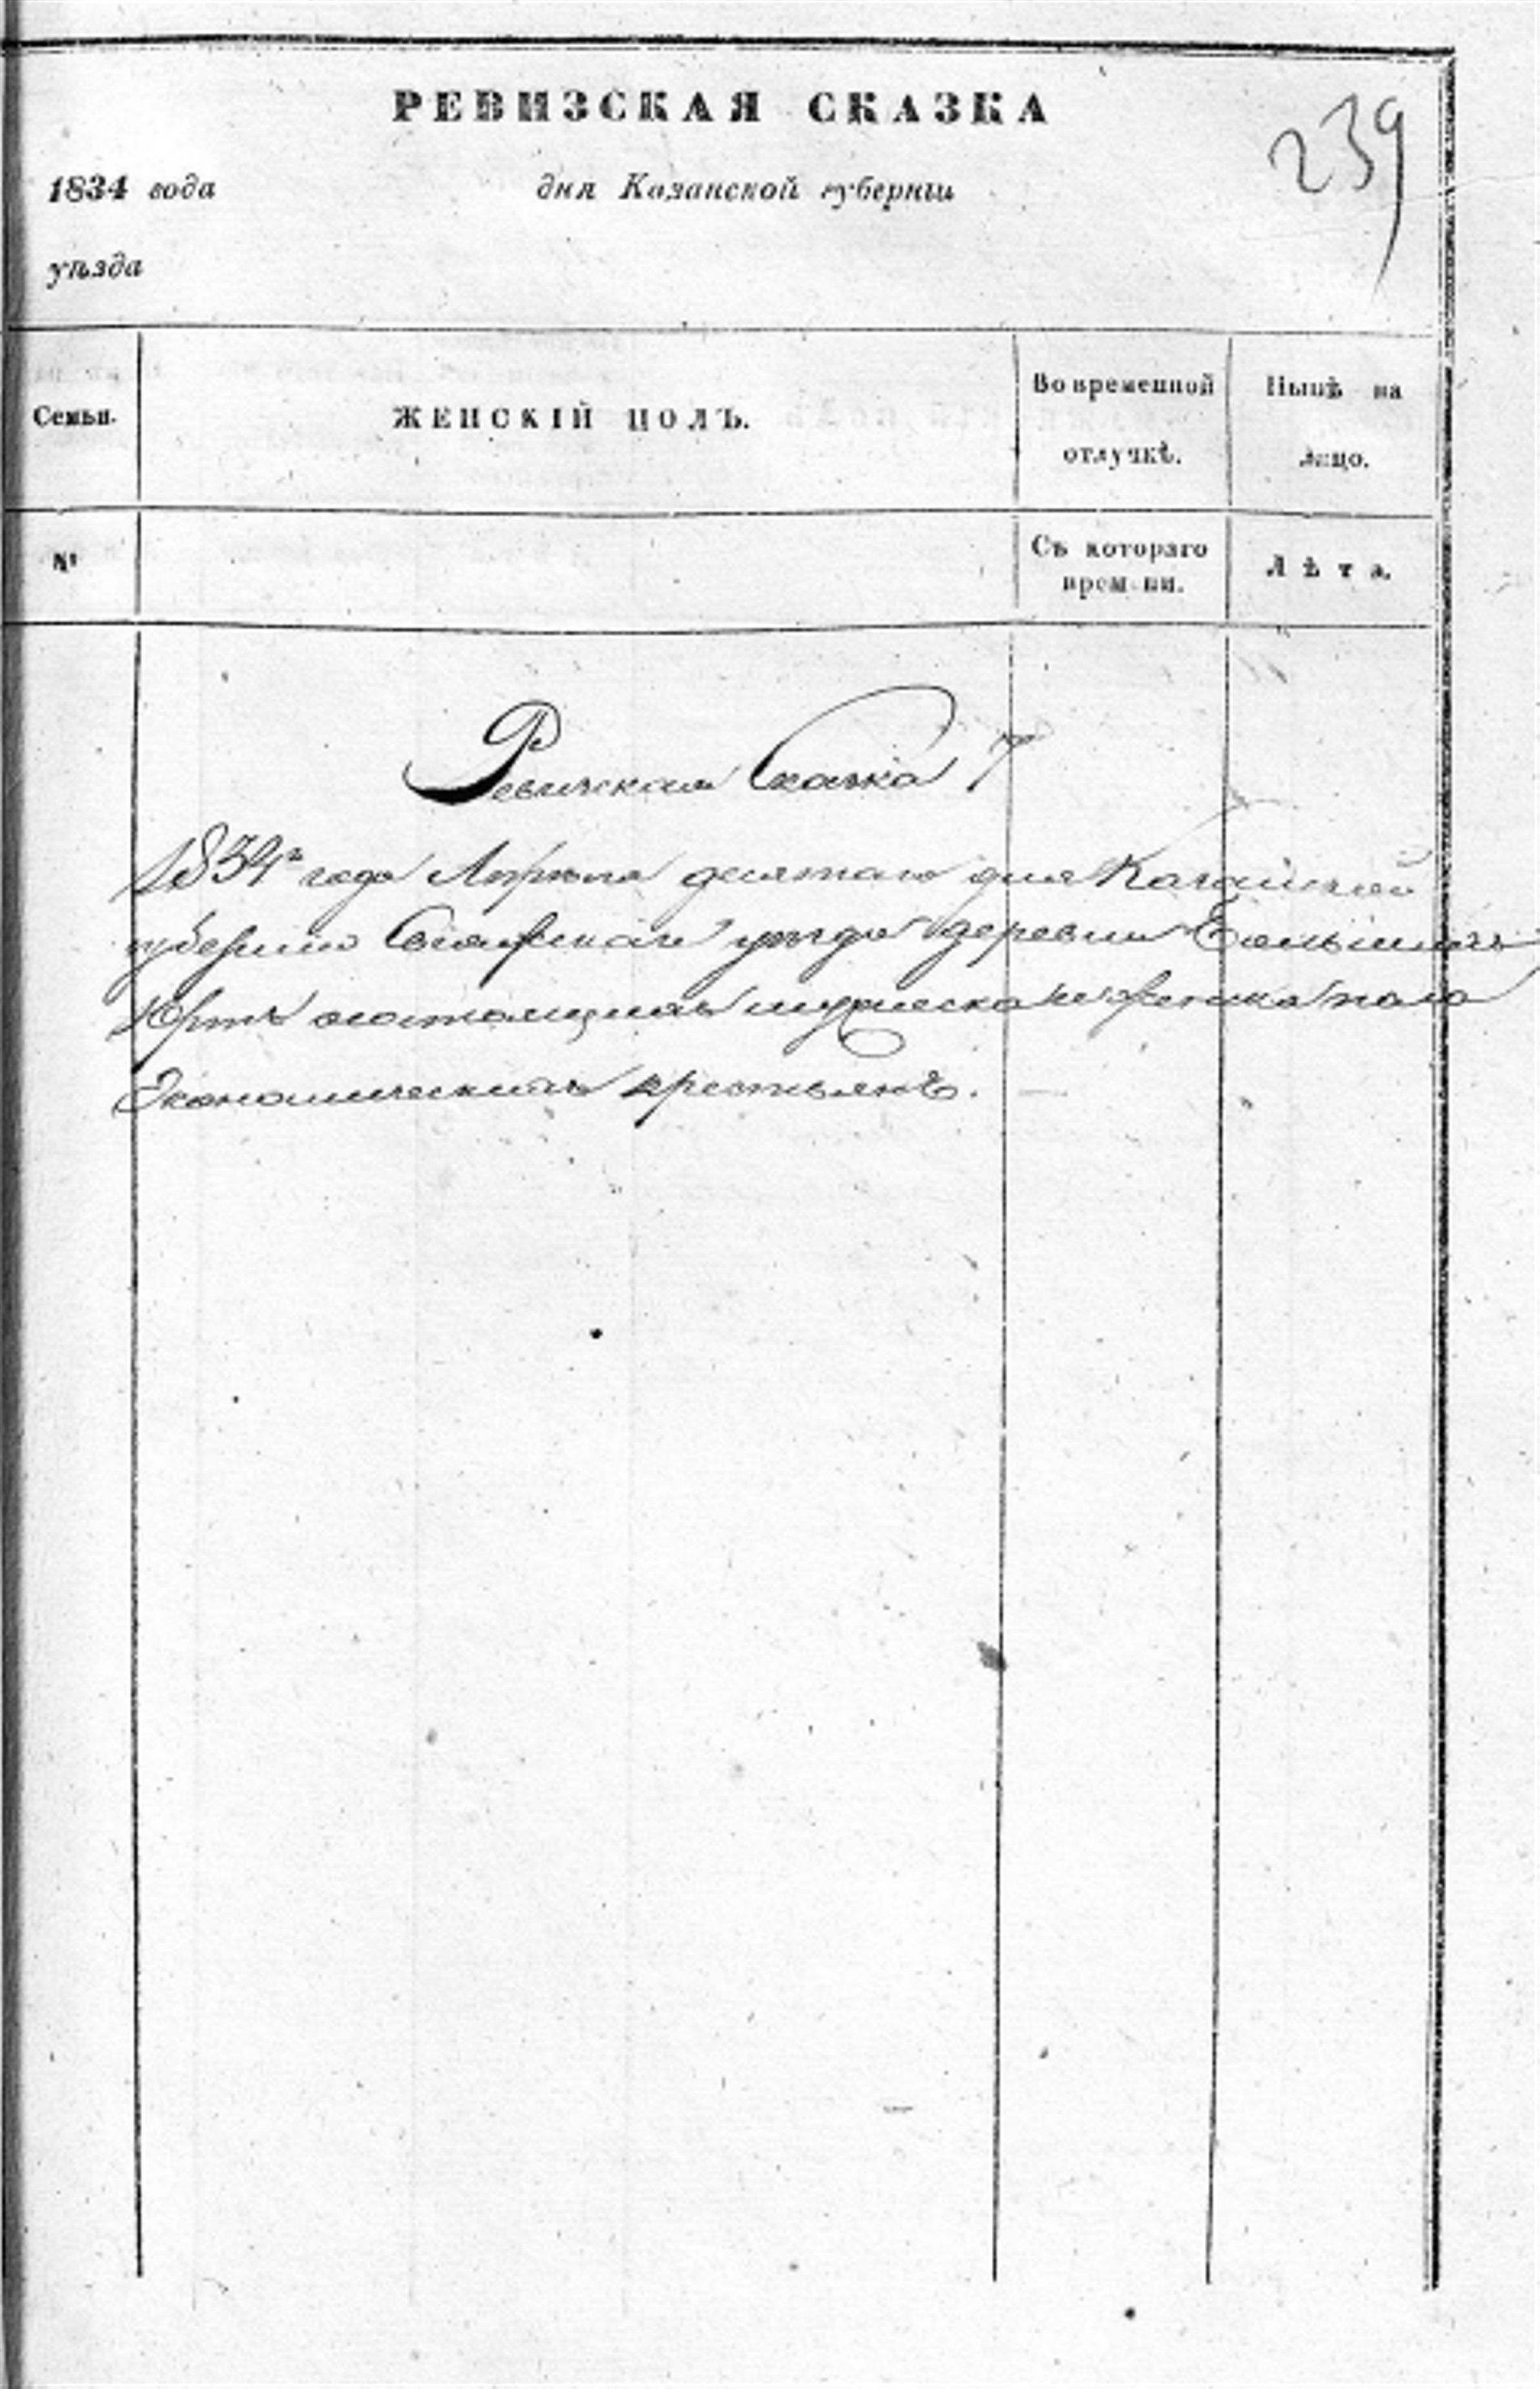 РЕВИЗСКАЯ СКАЗКА
239
1834 года дня Казанской губерніи
уѣзда
Семьи.
ЖЕНСКІЙ ПОЛЪ.
Во временной
отлучкѣ.
Нынѣ на
лицо.
№
Съ котораго
времени.
Лѣта.
Ревизская Сказка
1834го года Апреля десятаго дня Казанской
губернии Свіяжской уѣзда деревни Большихъ
Юртъ состоящихъ мужеска и женска пола
Экономическихъ крестьянъ.